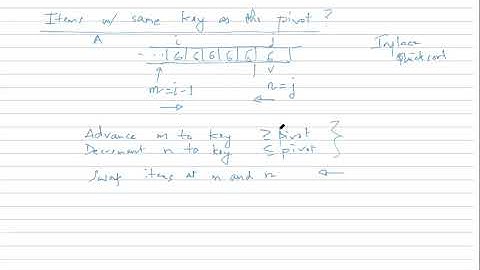 Items w/ same key as the pivot?
A i j
... 6 6 6 6 6 6
v
Inplace
Quicksort
m=i-1 n=j
Advance m to key ≥ pivot
Decrement n to key ≤ pivot
Swap items at m and n